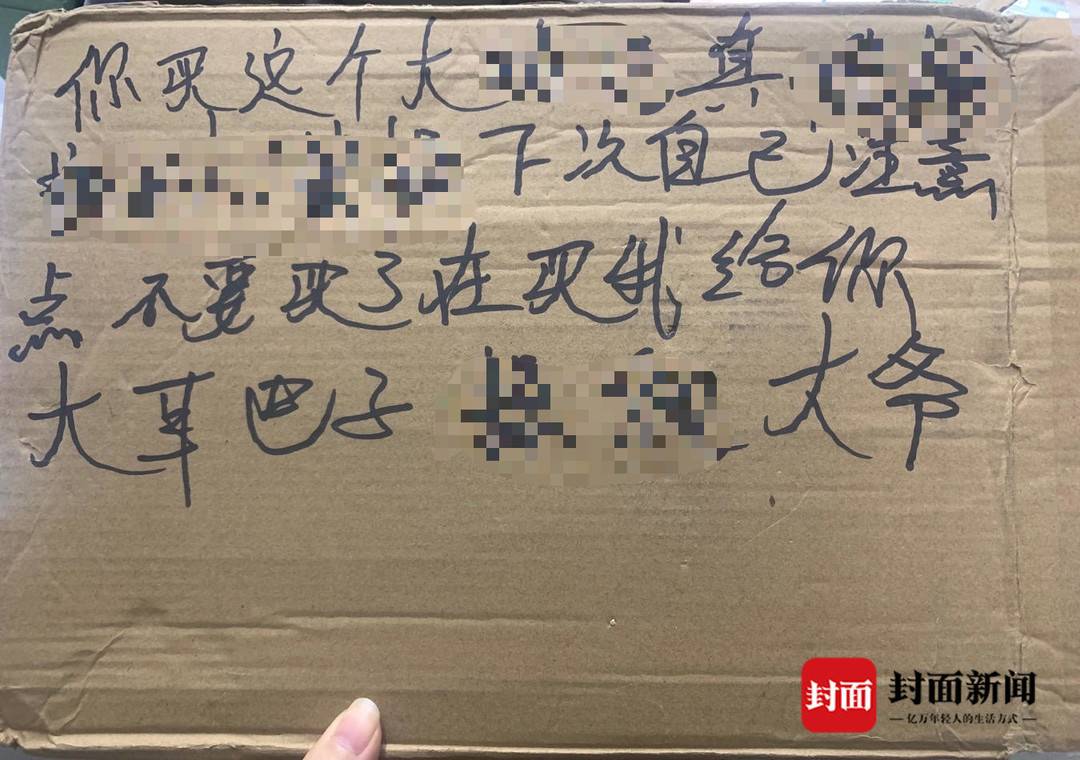 你买这个大 真
下次自己注意
点 不要买了在买我给你
大车巴子 大爷
封面 封面新闻
亿万年轻人的生活方式